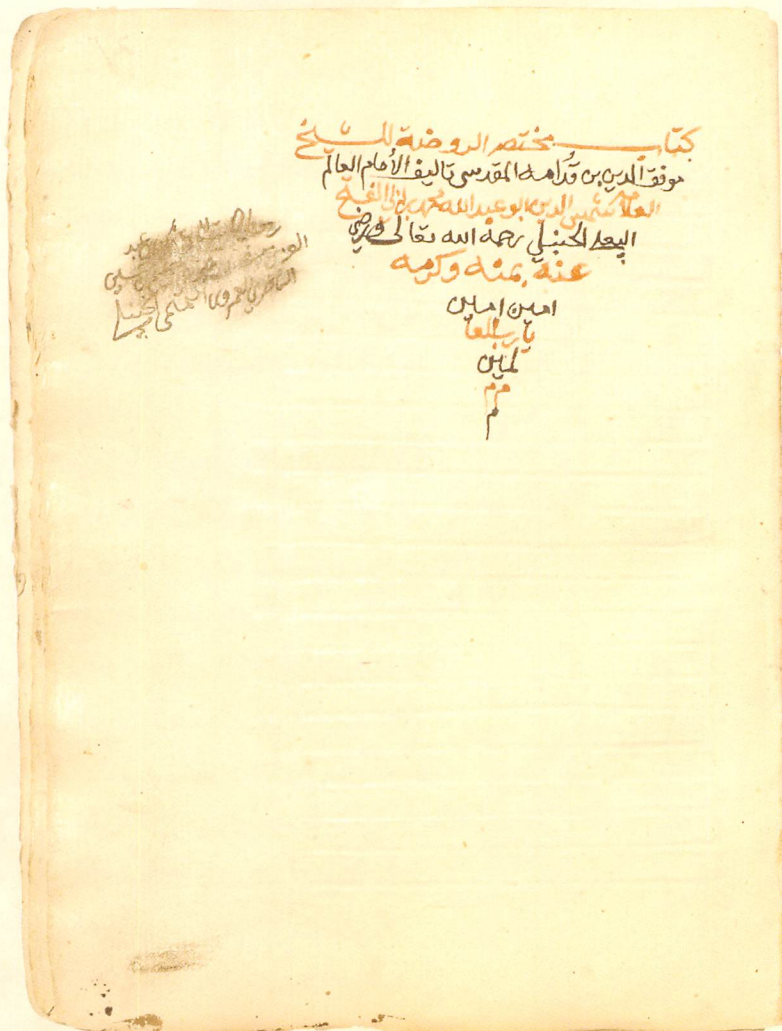 كتاب مختصر الروضة للشيخ
موفق الدين بن قدامه المقدسي تاليف الأمام العالم
العلامه شمس الدين ابو عبد الله محمد بن ابي الفتح
البعلي الحنبلي رحمه الله تعالى ورضي
عنه بمنه وكرمه
امين امين
يا رب العا
لمين
م م م
م
الحنبلي